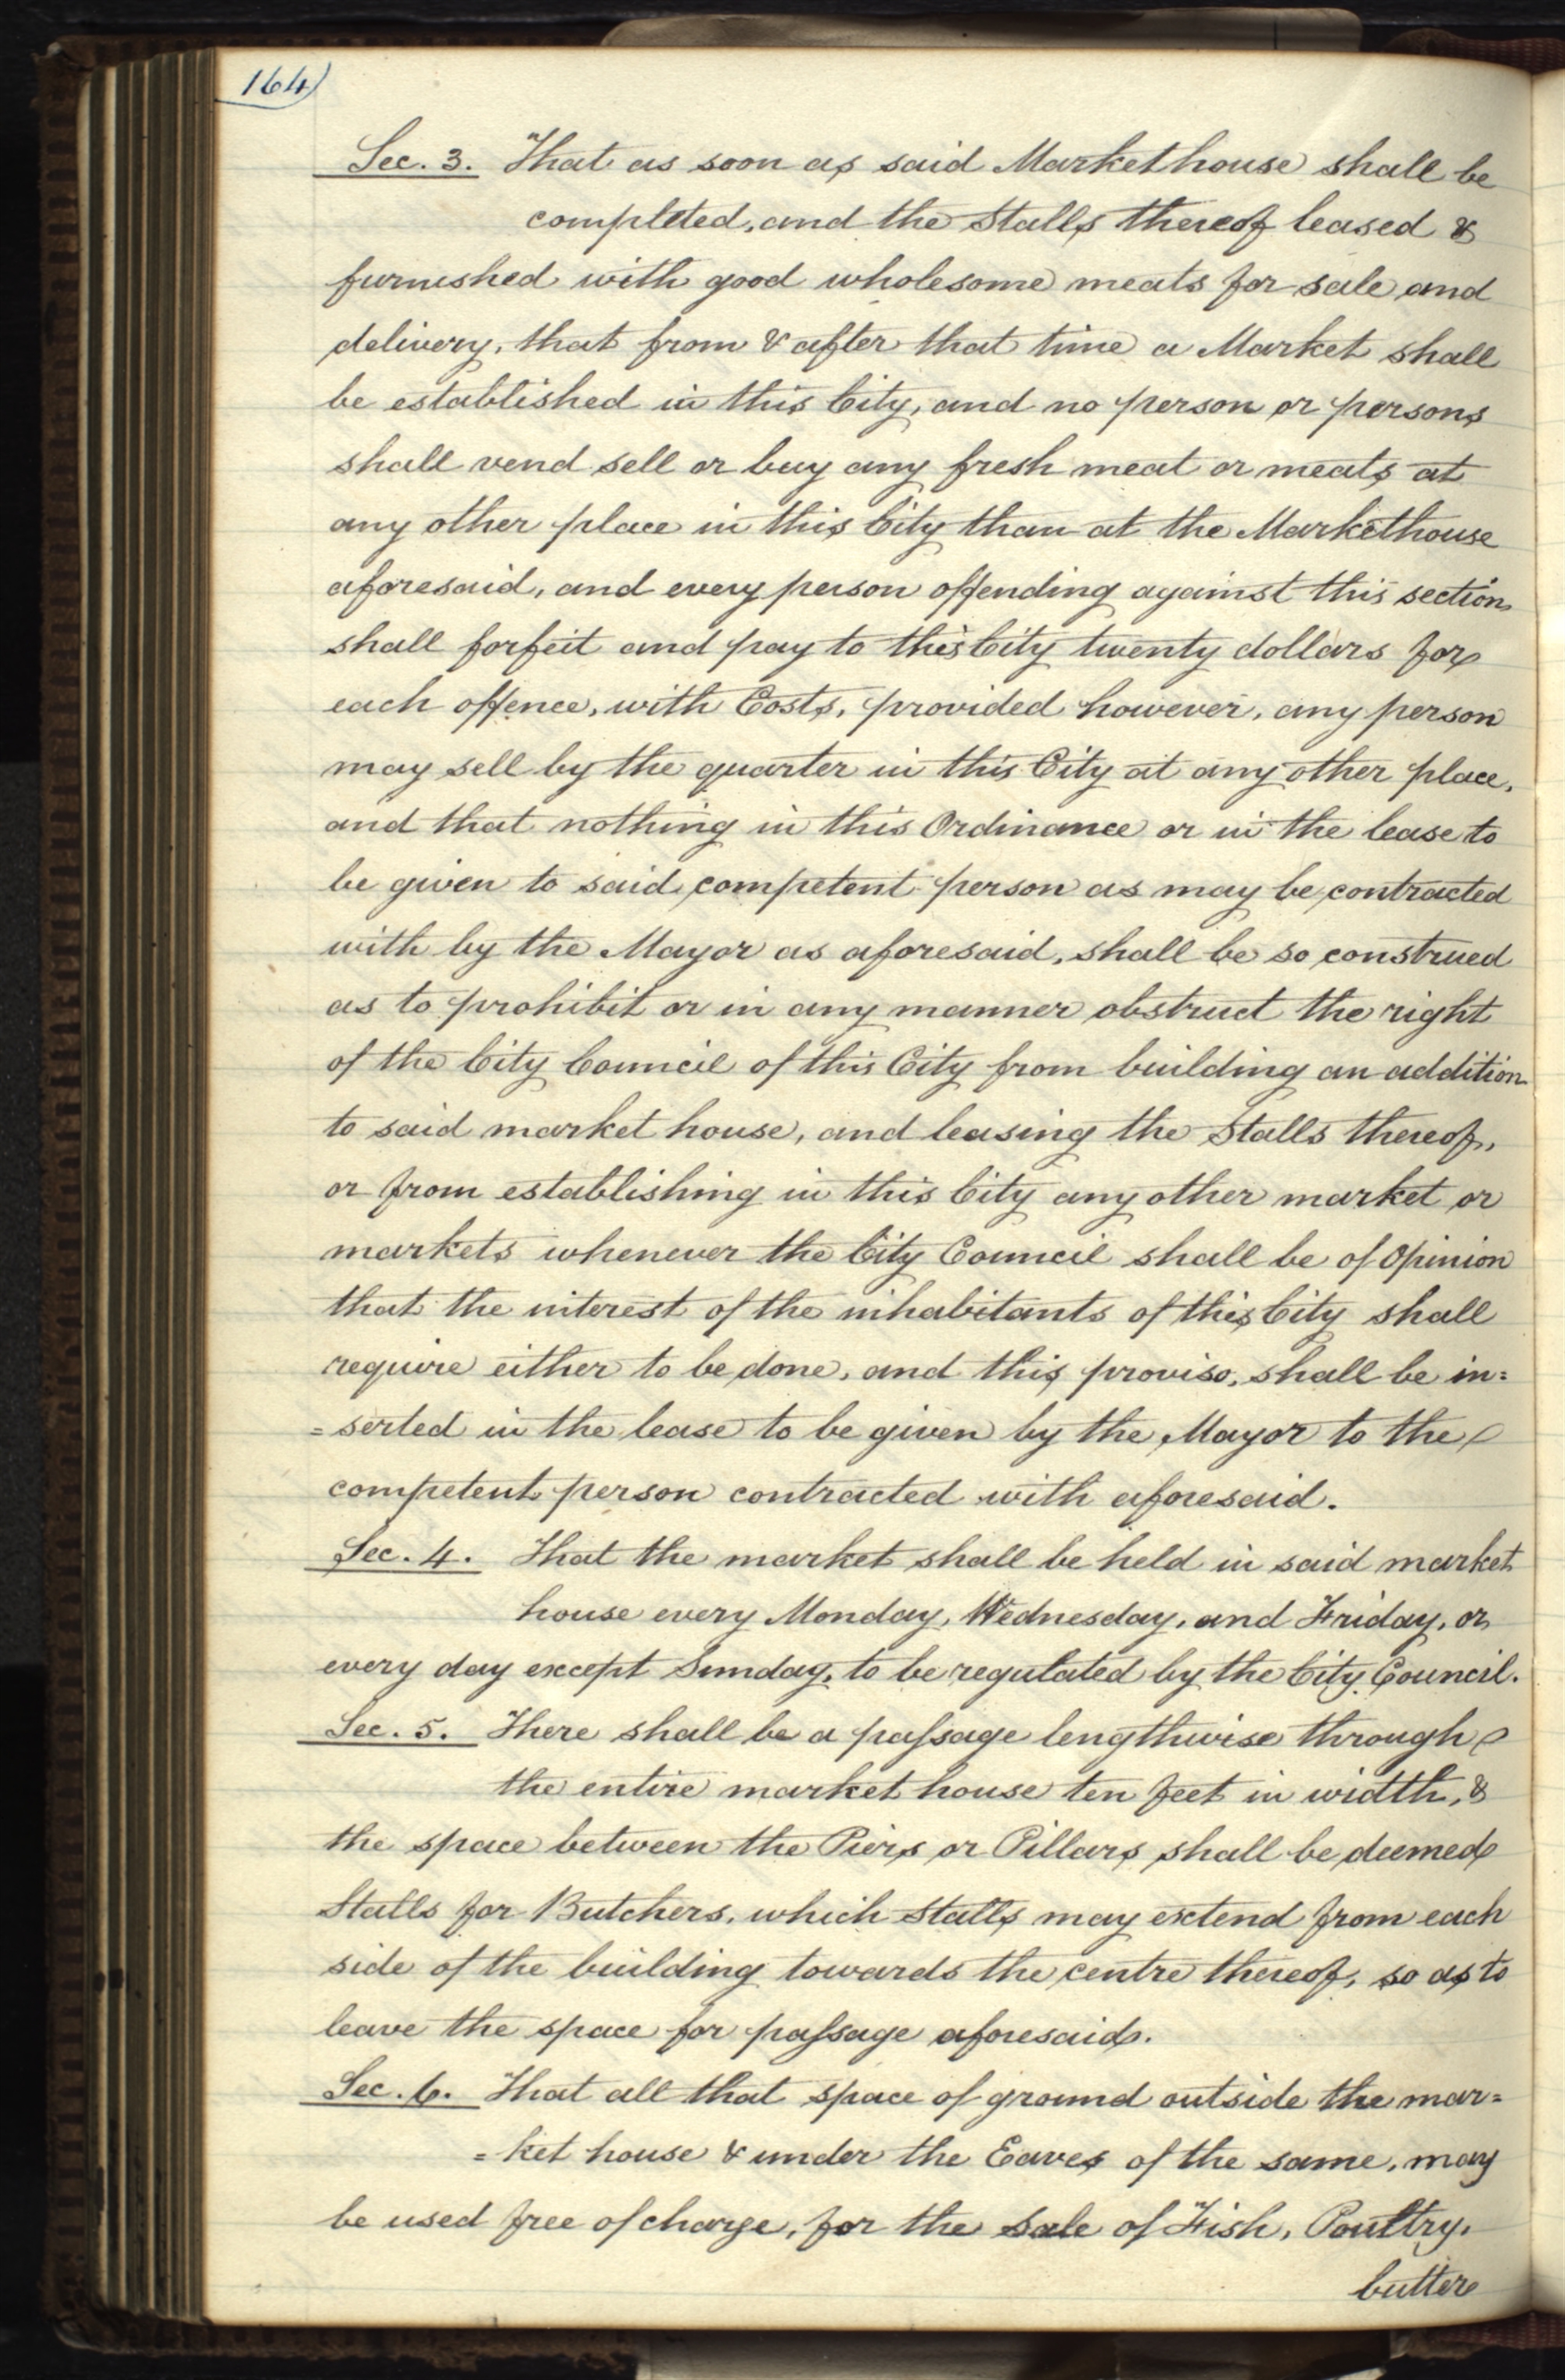 164)
Sec. 3. That as soon as said Markethouse shall be
completed, and the Stalls thereof leased &
furnished with good wholesome meats for sale and
delivery, that from & after that time a Market shall
be established in this City, and no person or persons
shall vend sell or buy any fresh meat or meats at
any other place in this City than at the Markethouse
aforesaid, and every person offending against this section
shall forfeit and pay to this City twenty dollars for
each offence, with Costs, provided however, any person
may sell by the quarter in this City at any other place,
and that nothing in this Ordinance or in the lease to
be given to said competent person as may be contracted
with by the Mayor as aforesaid, shall be so construed
as to prohibit or in any manner obstruct the right
of the City Council of this City from building an addition
to said market house, and leasing the Stalls thereof,
or from establishing in this City any other market or
markets whenever the City Council shall be of Opinion
that the interest of the inhabitants of this City shall
require either to be done, and this proviso, shall be in=
=serted in the lease to be given by the Mayor to the
competent person contracted with aforesaid.
Sec. 4. That the market shall be held in said market
house every Monday, Wednesday, and Friday, or
every day except Sunday, to be regulated by the City Council.
Sec. 5. There shall be a paſsage lengthwise through
the entire market house ten feet in width, &
the space between the Piers or Pillars shall be deemed
Stalls for Butchers, which Stalls may extend from each
side of the building towards the centre thereof, so as to
leave the space for paſsage aforesaid.
Sec. 6. That all that space of ground outside the mar=
=ket house & under the Eaves of the same, may
be used free of charge, for the Sale of Fish, Poultry,
butter